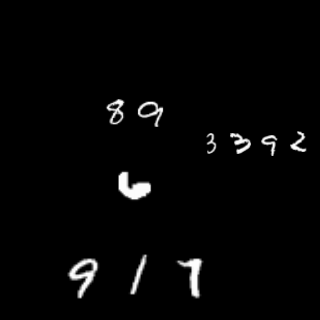 89
3392
6
917